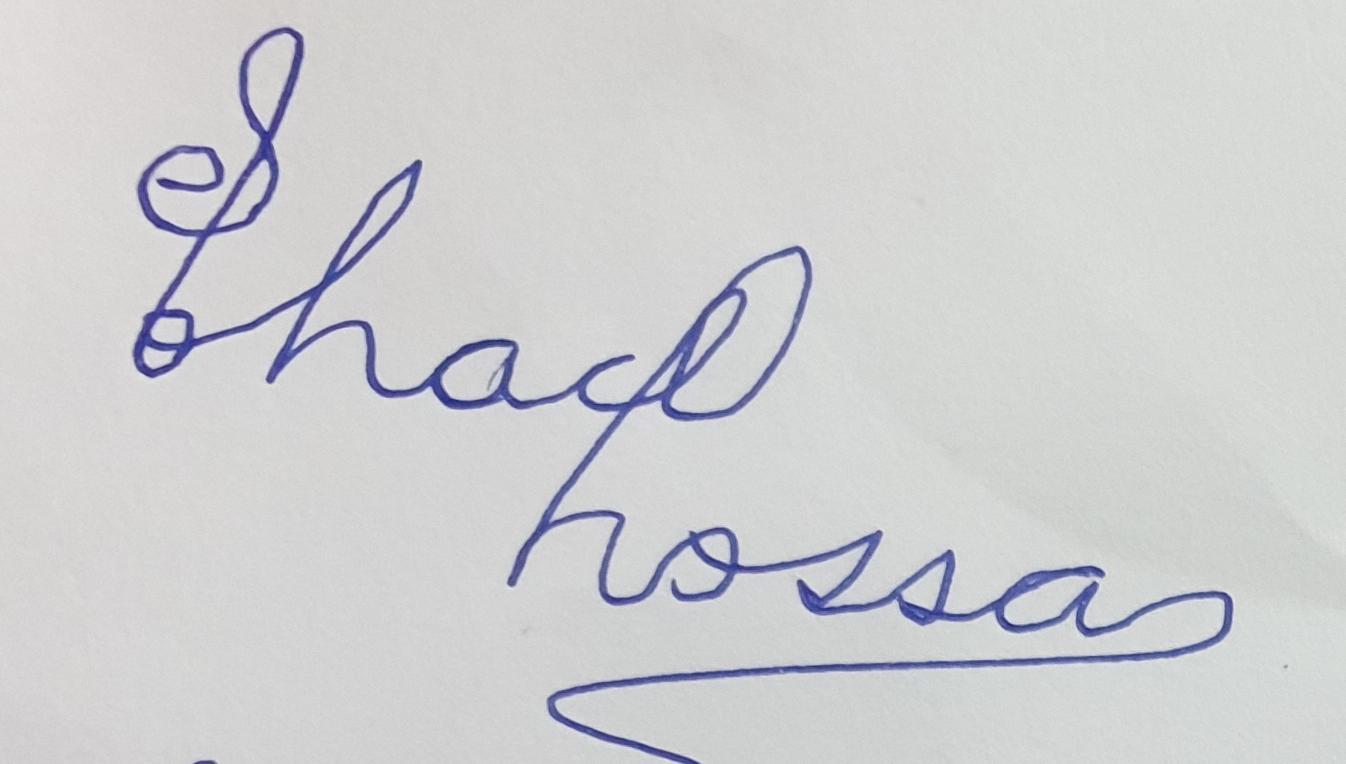 Shad
hossan